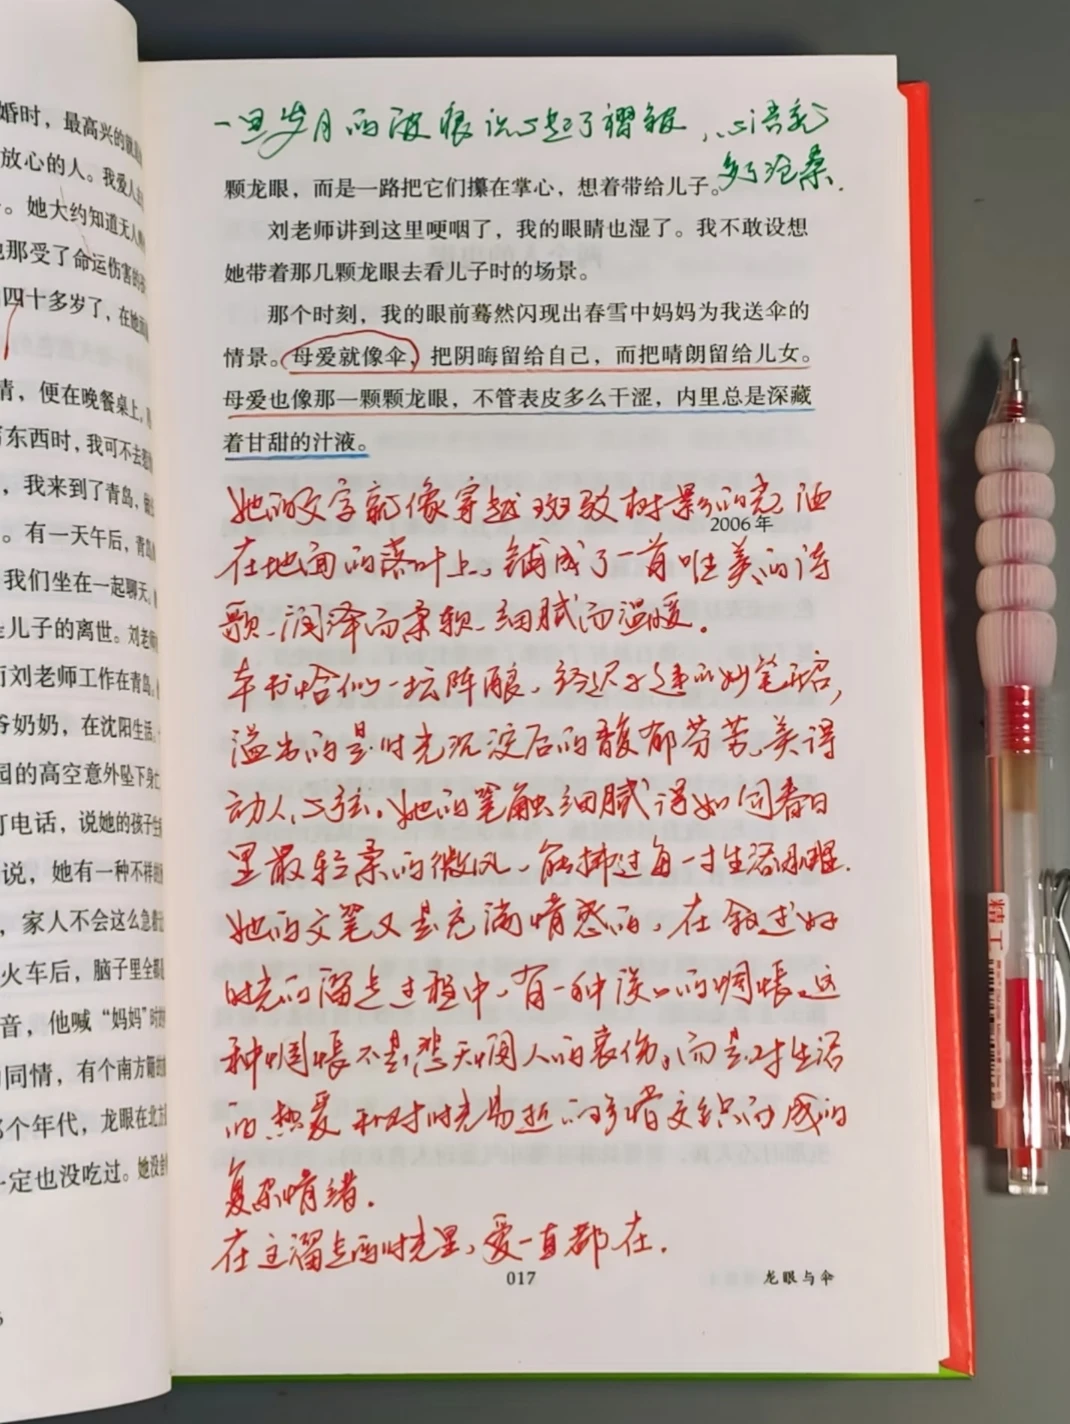 婚时，最高兴的就是
放心的人。我爱人
。她大约知道无人
那受了命运伤害的
四十多岁了，在她面
情，便在晚餐桌上，
东西时，我可不去
，我来到了青岛，
。有一天午后，青岛
我们坐在一起聊天。
儿子的离世。刘老师
而刘老师工作在青岛。
爷奶奶，在沈阳生活。
园的高空意外坠下身亡
打电话，说她的孩子生
说，她有一种不祥的
，家人不会这么急着让
火车后，脑子里全都是
音，他喊“妈妈”时的
同情，有个南方籍的
个年代，龙眼在北方
一定也没吃过。她没舍
一旦岁月的波痕让心起了褶皱，心语就
多了沧桑.
颗龙眼，而是一路把它们攥在掌心，想着带给儿子。
刘老师讲到这里哽咽了，我的眼睛也湿了。我不敢设想
她带着那几颗龙眼去看儿子时的场景。
那个时刻，我的眼前蓦然闪现出春雪中妈妈为我送伞的
情景。母爱就像伞，把阴晦留给自己，而把晴朗留给儿女。
母爱也像那一颗颗龙眼，不管表皮多么干涩，内里总是深藏
着甘甜的汁液。
2006年
她的文字就像穿越斑驳树影的光，洒
在地面的落叶上，铺成了一首唯美的诗
歌，润泽而柔软，细腻而温暖.
本书恰似一坛陈酿，经迟子建的妙笔
溢出的是时光沉淀后的馥郁芬芳，美得
动人心弦。她的笔触细腻得如同春日
里最轻柔的微风，轻拂过每一寸生活肌理.
她的文笔又是充满情感的，在叙述好
时光的溜走过程中，有一种淡淡的惆怅，这
种惆怅不是悲天悯人的哀伤，而是对生活
的热爱和对时光易逝的珍惜交织而成的
复杂情绪.
在这溜走的时光里，爱一直都在.
017
龙眼与伞